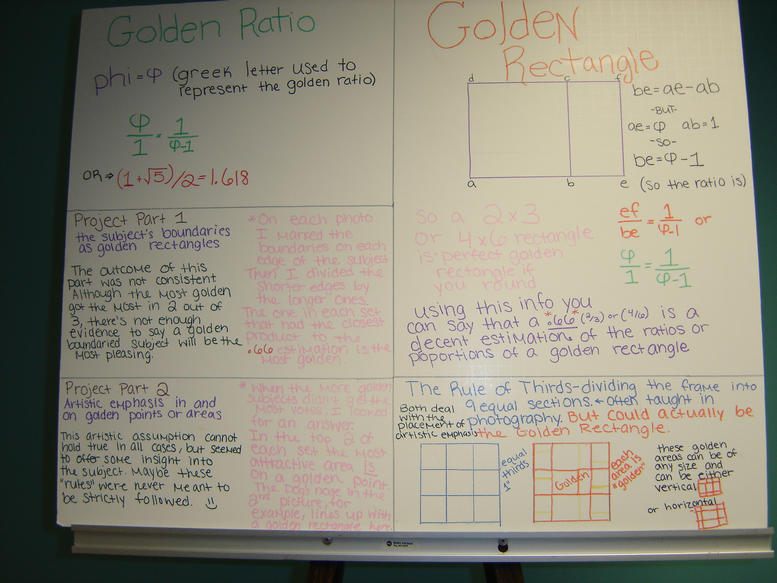 Golden Ratio
phi = φ (greek letter used to
represent the golden ratio)
φ/1 = 1/φ-1
OR → (1+√5)/2 = 1.618
Project Part 1
the subject's boundaries
as golden rectangles
The outcome of this
part was not consistent
Although the most golden
got the most in 2 out of
3, there's not enough
evidence to say a golden
boundaried subject will be the
most pleasing.
*On each photo
I marked the
boundaries on each
edge of the subject
Then I divided the
shorter edges by
the longer ones.
The one in each set
that had the closest
product to the
.66 estimation is the
most golden.
Project Part 2
Artistic emphasis in and
on golden points or areas
This artistic assumption cannot
hold true in all cases, but seemed
to offer some insight into
the subject. Maybe these
"rules" were never meant to
be strictly followed.
*When the more golden
subjects didn't get the
most votes, I looked
for an answer.
In the top 2 of
each set the most
attractive area is
on a golden point.
The Dog's nose in the
2nd picture, for
example, lines up with
a golden rectangle
Golden
Rectangle
d c f
a b e
be = ae - ab
-BUT-
ae = φ ab = 1
-so-
be = φ - 1
(so the ratio is)
ef/be = 1/φ-1 or
φ/1 = 1/φ-1
so a 2 x 3
or 4 x 6 rectangle
is perfect golden
rectangle if
you round
using this info you
can say that a *.66* (2/3) or (4/6) is a
decent estimation of the ratios or
poportions of a golden rectangle
The Rule of Thirds-dividing the frame into
9 equal sections. ← often taught in
photography. But could actually be
the Golden Rectangle.
Both deal
with the
placement of
artistic emphasis
equal
thirds
1"
Golden
each
area is
"golden"
these golden
areas can be of
any size and
can be either
vertical
or horizontal